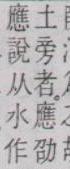 土旁者應劭
應說从水作